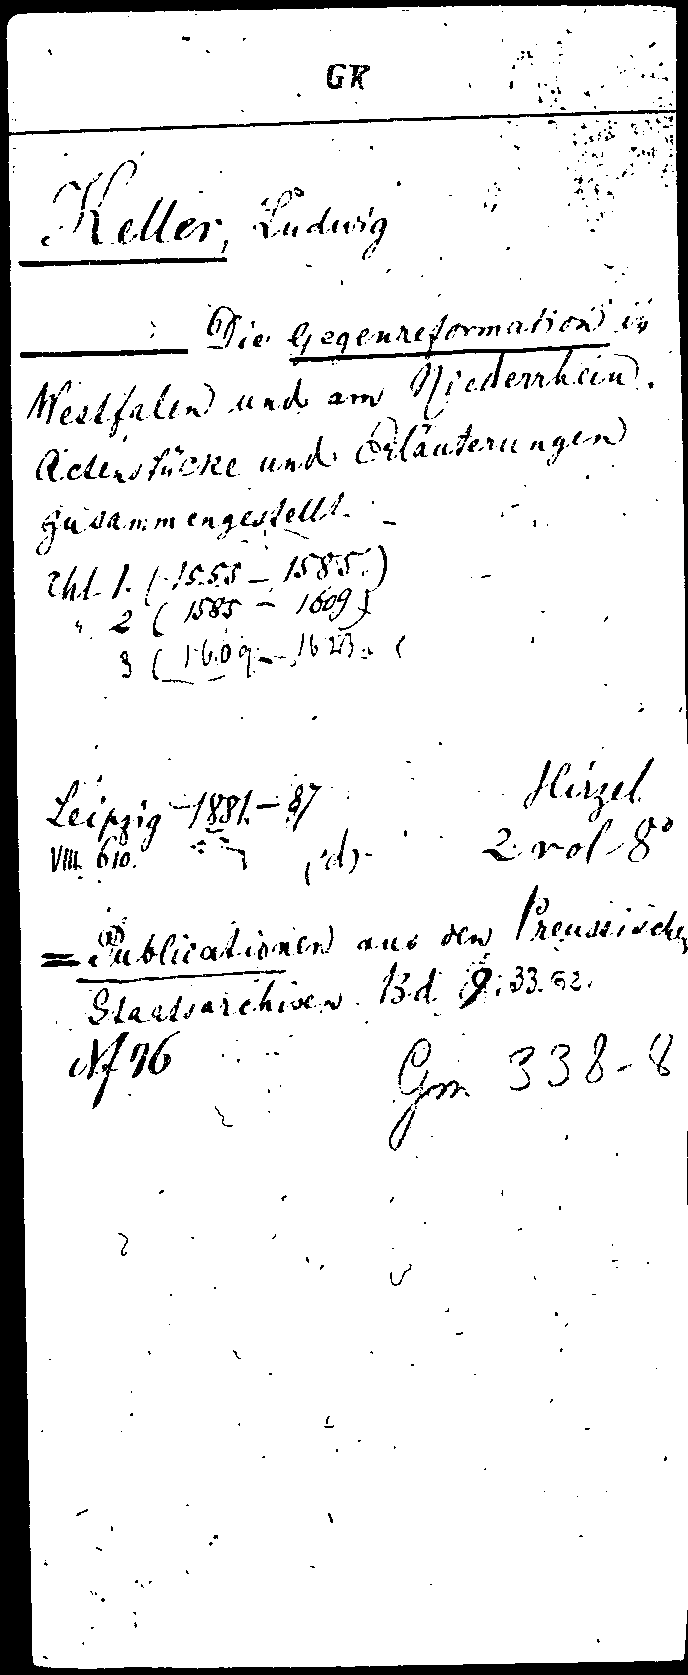 GR
Keller, Ludwig
Die Gegenreformation in
Westfalen und am Niederrhein.
Actenstücke und Erläuterungen
zusammengestellt.
Thl. 1. (1555 - 1585.)
" 2 (1585 - 1609)
3 (1609 - 1623.
Leipzig 1881.-87 Hirzel.
VIII. 610. 2 vol - 8°
= Publicationen aus den Preussischen
Staatsarchiven Bd. 9. 33. 62.
Gm 338-8